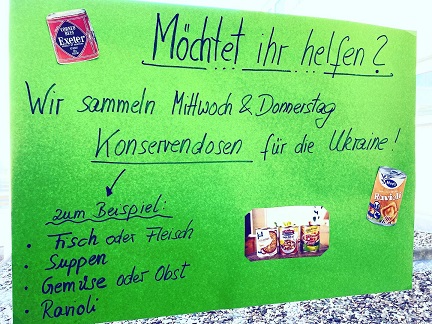 Möchtet ihr helfen?
Wir sammeln Mittwoch & Donnerstag
Konservendosen für die Ukraine!
zum Beispiel:
• Fisch oder Fleisch
• Suppen
• Gemüse oder Obst
• Ravioli
Exeter
Ravioli